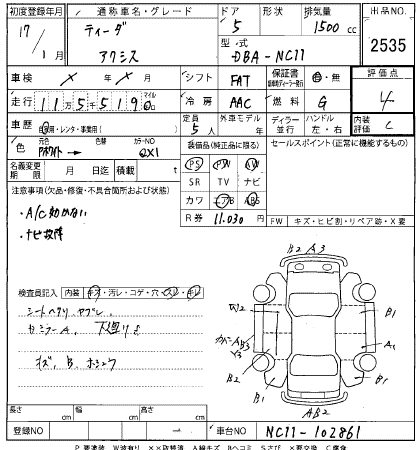 初度登録年月 通称車名・グレード ドア 形状 排気量 出品NO.
17/1月 ティーダ 5 1500cc 2535
アクシス 型式 DBA-NC11
車検 × 年 × 月 シフト FAT 保証書 有・無 評価点
走行 115519 マイル 冷房 AAC 燃料 G 4
車歴 自家用・レンタ・事業用( ) 定員 5人 外車モデル 年 ディーラー 並行 ハンドル 左・右 内装評価 C
色 元色 色替 カラーNO QX1
装備品(純正品に限る) セールスポイント(正常に機能するもの)
名義変更期限 月 日迄 積載 t
PS PW AW
SR TV ナビ
カワ エアB ABS
R券 11,030円
注意事項(欠品・修復・不具合箇所および状態)
・A/C効かない
・ナビ故障
FW キズ・ヒビ割・リペア跡・X要
検査員記入 内装 キズ・汚レ・コゲ・穴・スレ・キレ
シートヘタリ、ヤブレ、
キズ、B、
B2 A3
W2 B1
A1
Y3
B2 B1
AB2
長さ cm 幅 cm 高さ cm
登録NO 車台NO NC11-102861
P要塗装 W波有り ××取替済 A線キズ Bヘコミ Sさび ×要交換 C腐食